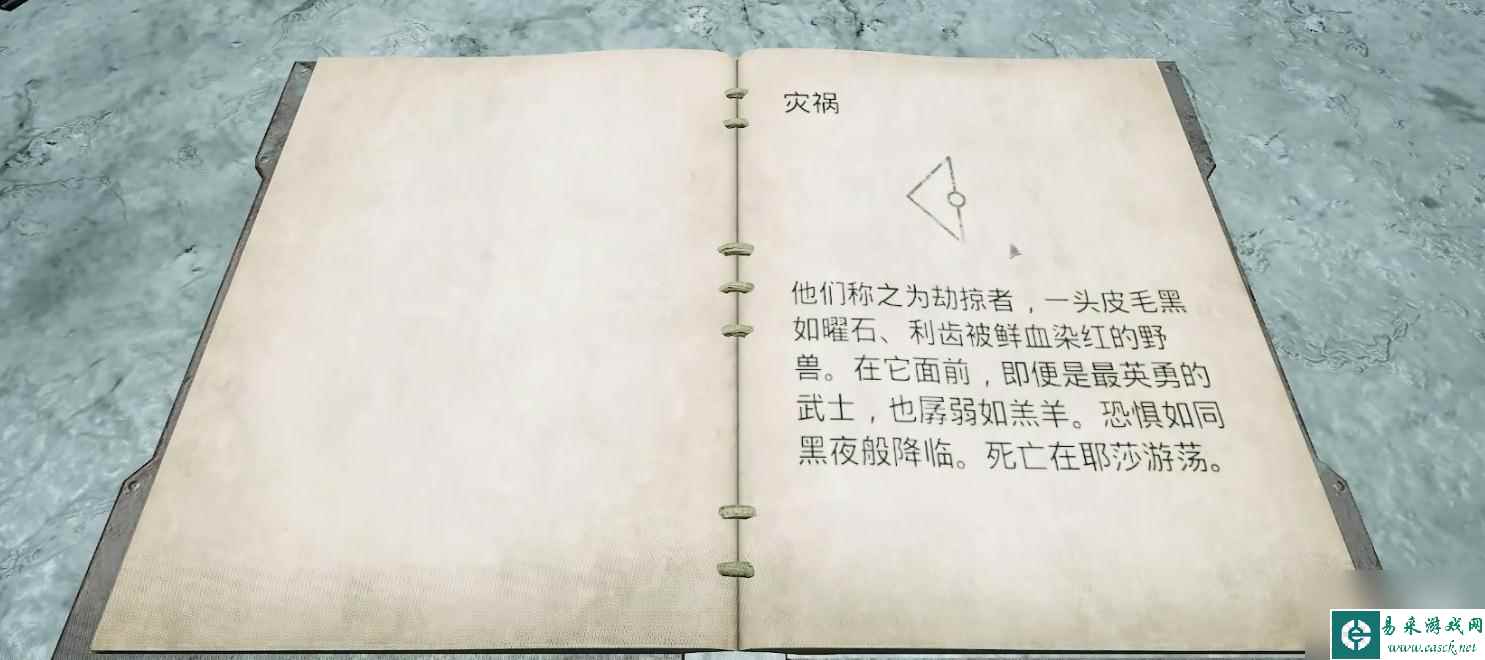 灾祸
他们称之为劫掠者，一头皮毛黑
如曜石、利齿被鲜血染红的野
兽。在它面前，即便是最英勇的
武士，也孱弱如羔羊。恐惧如同
黑夜般降临。死亡在耶莎游荡。
易采游戏网
www.easck.net